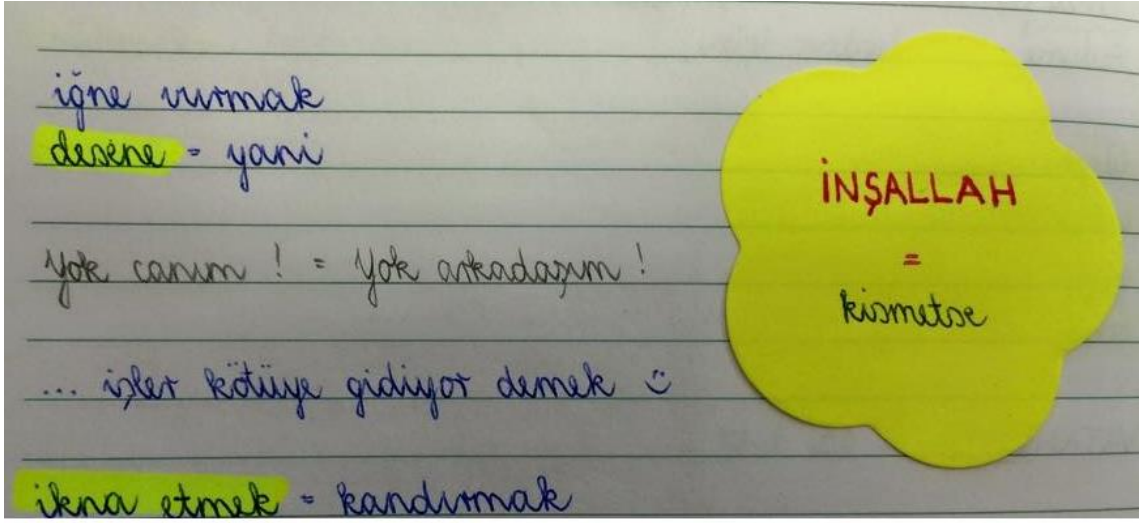 iğne vurmak
desene = yani
Yok canım ! = Yok arkadaşım !
... işler kötüye gidiyor demek :)
ikna etmek = kandırmak
İNŞALLAH
=
kismetse